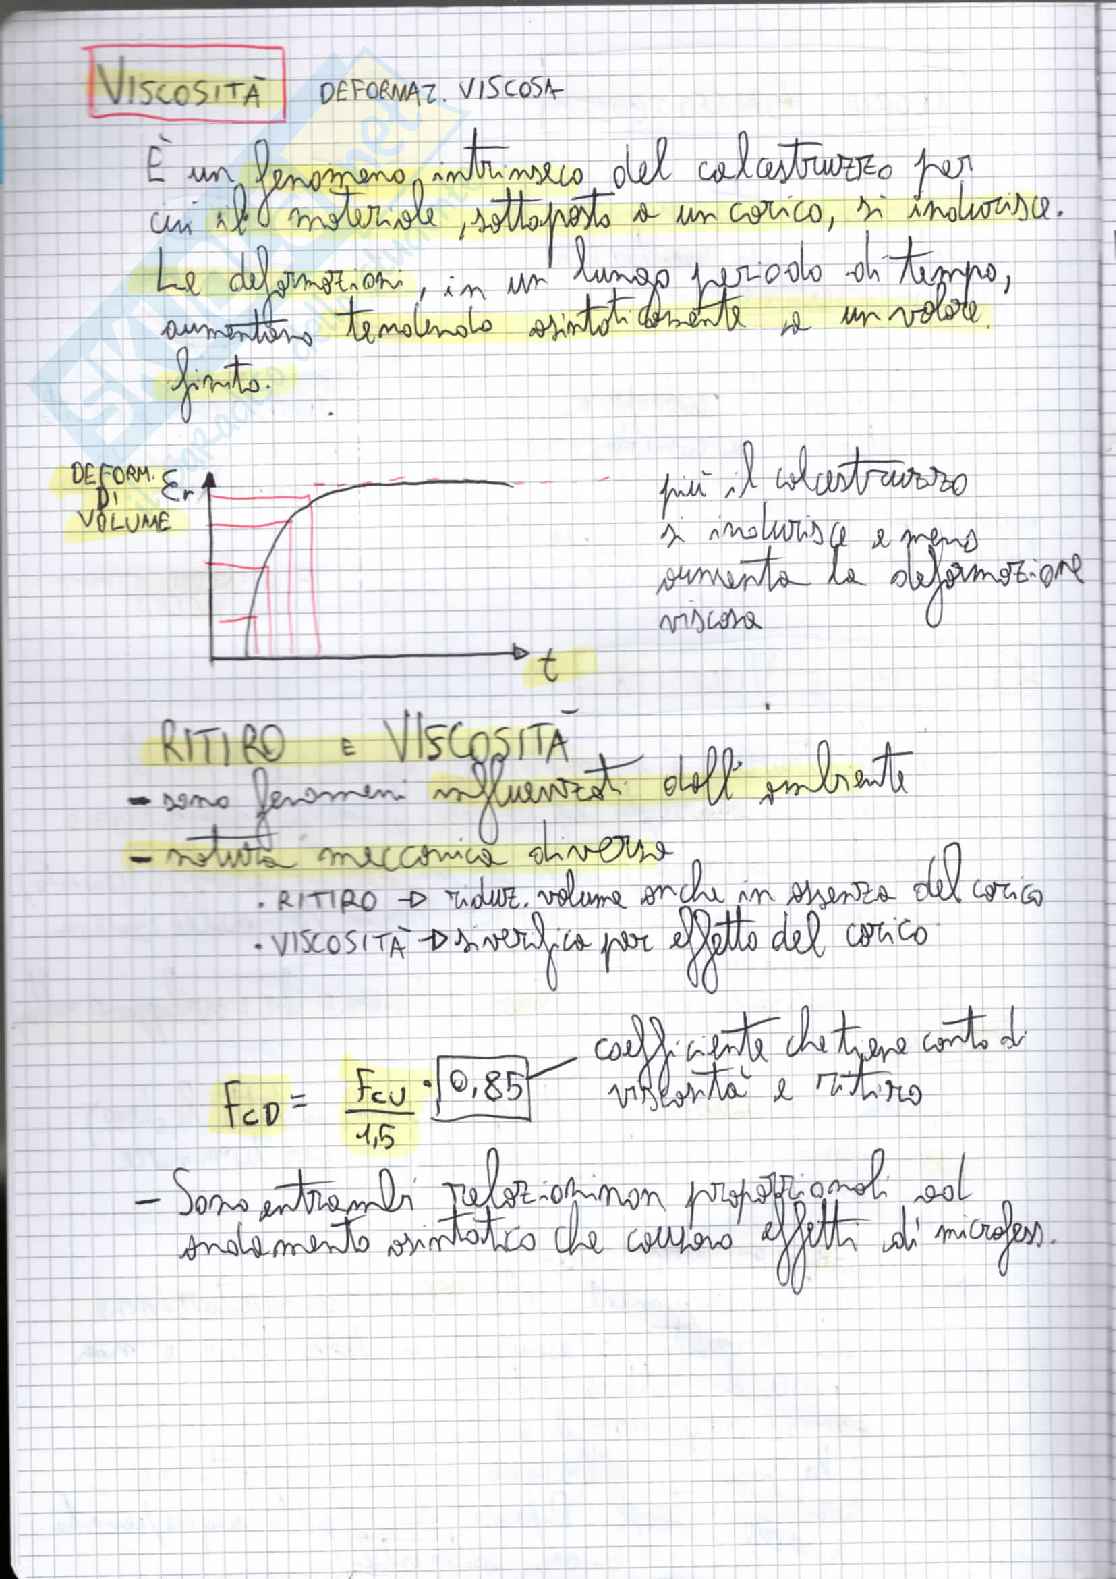 VISCOSITÀ DEFORMAZ. VISCOSA
È un fenomeno intrinseco del calcestruzzo per
cui il materiale, sottoposto a un carico, si indurisce.
Le deformazioni, in un lungo periodo di tempo,
aumentano tendendo asintoticamente a un valore
finito.
DEFORM. DI VOLUME εr
più il calcestruzzo
si indurisce e meno
aumenta la deformazione
viscosa
t
RITIRO E VISCOSITÀ
- sono fenomeni influenzati dall'ambiente
- natura meccanica diversa
· RITIRO → riduz. volume anche in assenza del carico
· VISCOSITÀ → si verifica per effetto del carico
FCD = FCU / 1,5 · 0,85
coefficiente che tiene conto di
viscosità e ritiro
- Sono entrambi relazioni non proporzionali ad
andamento asintotico che causano effetti di microfess.
SKUOLA.net